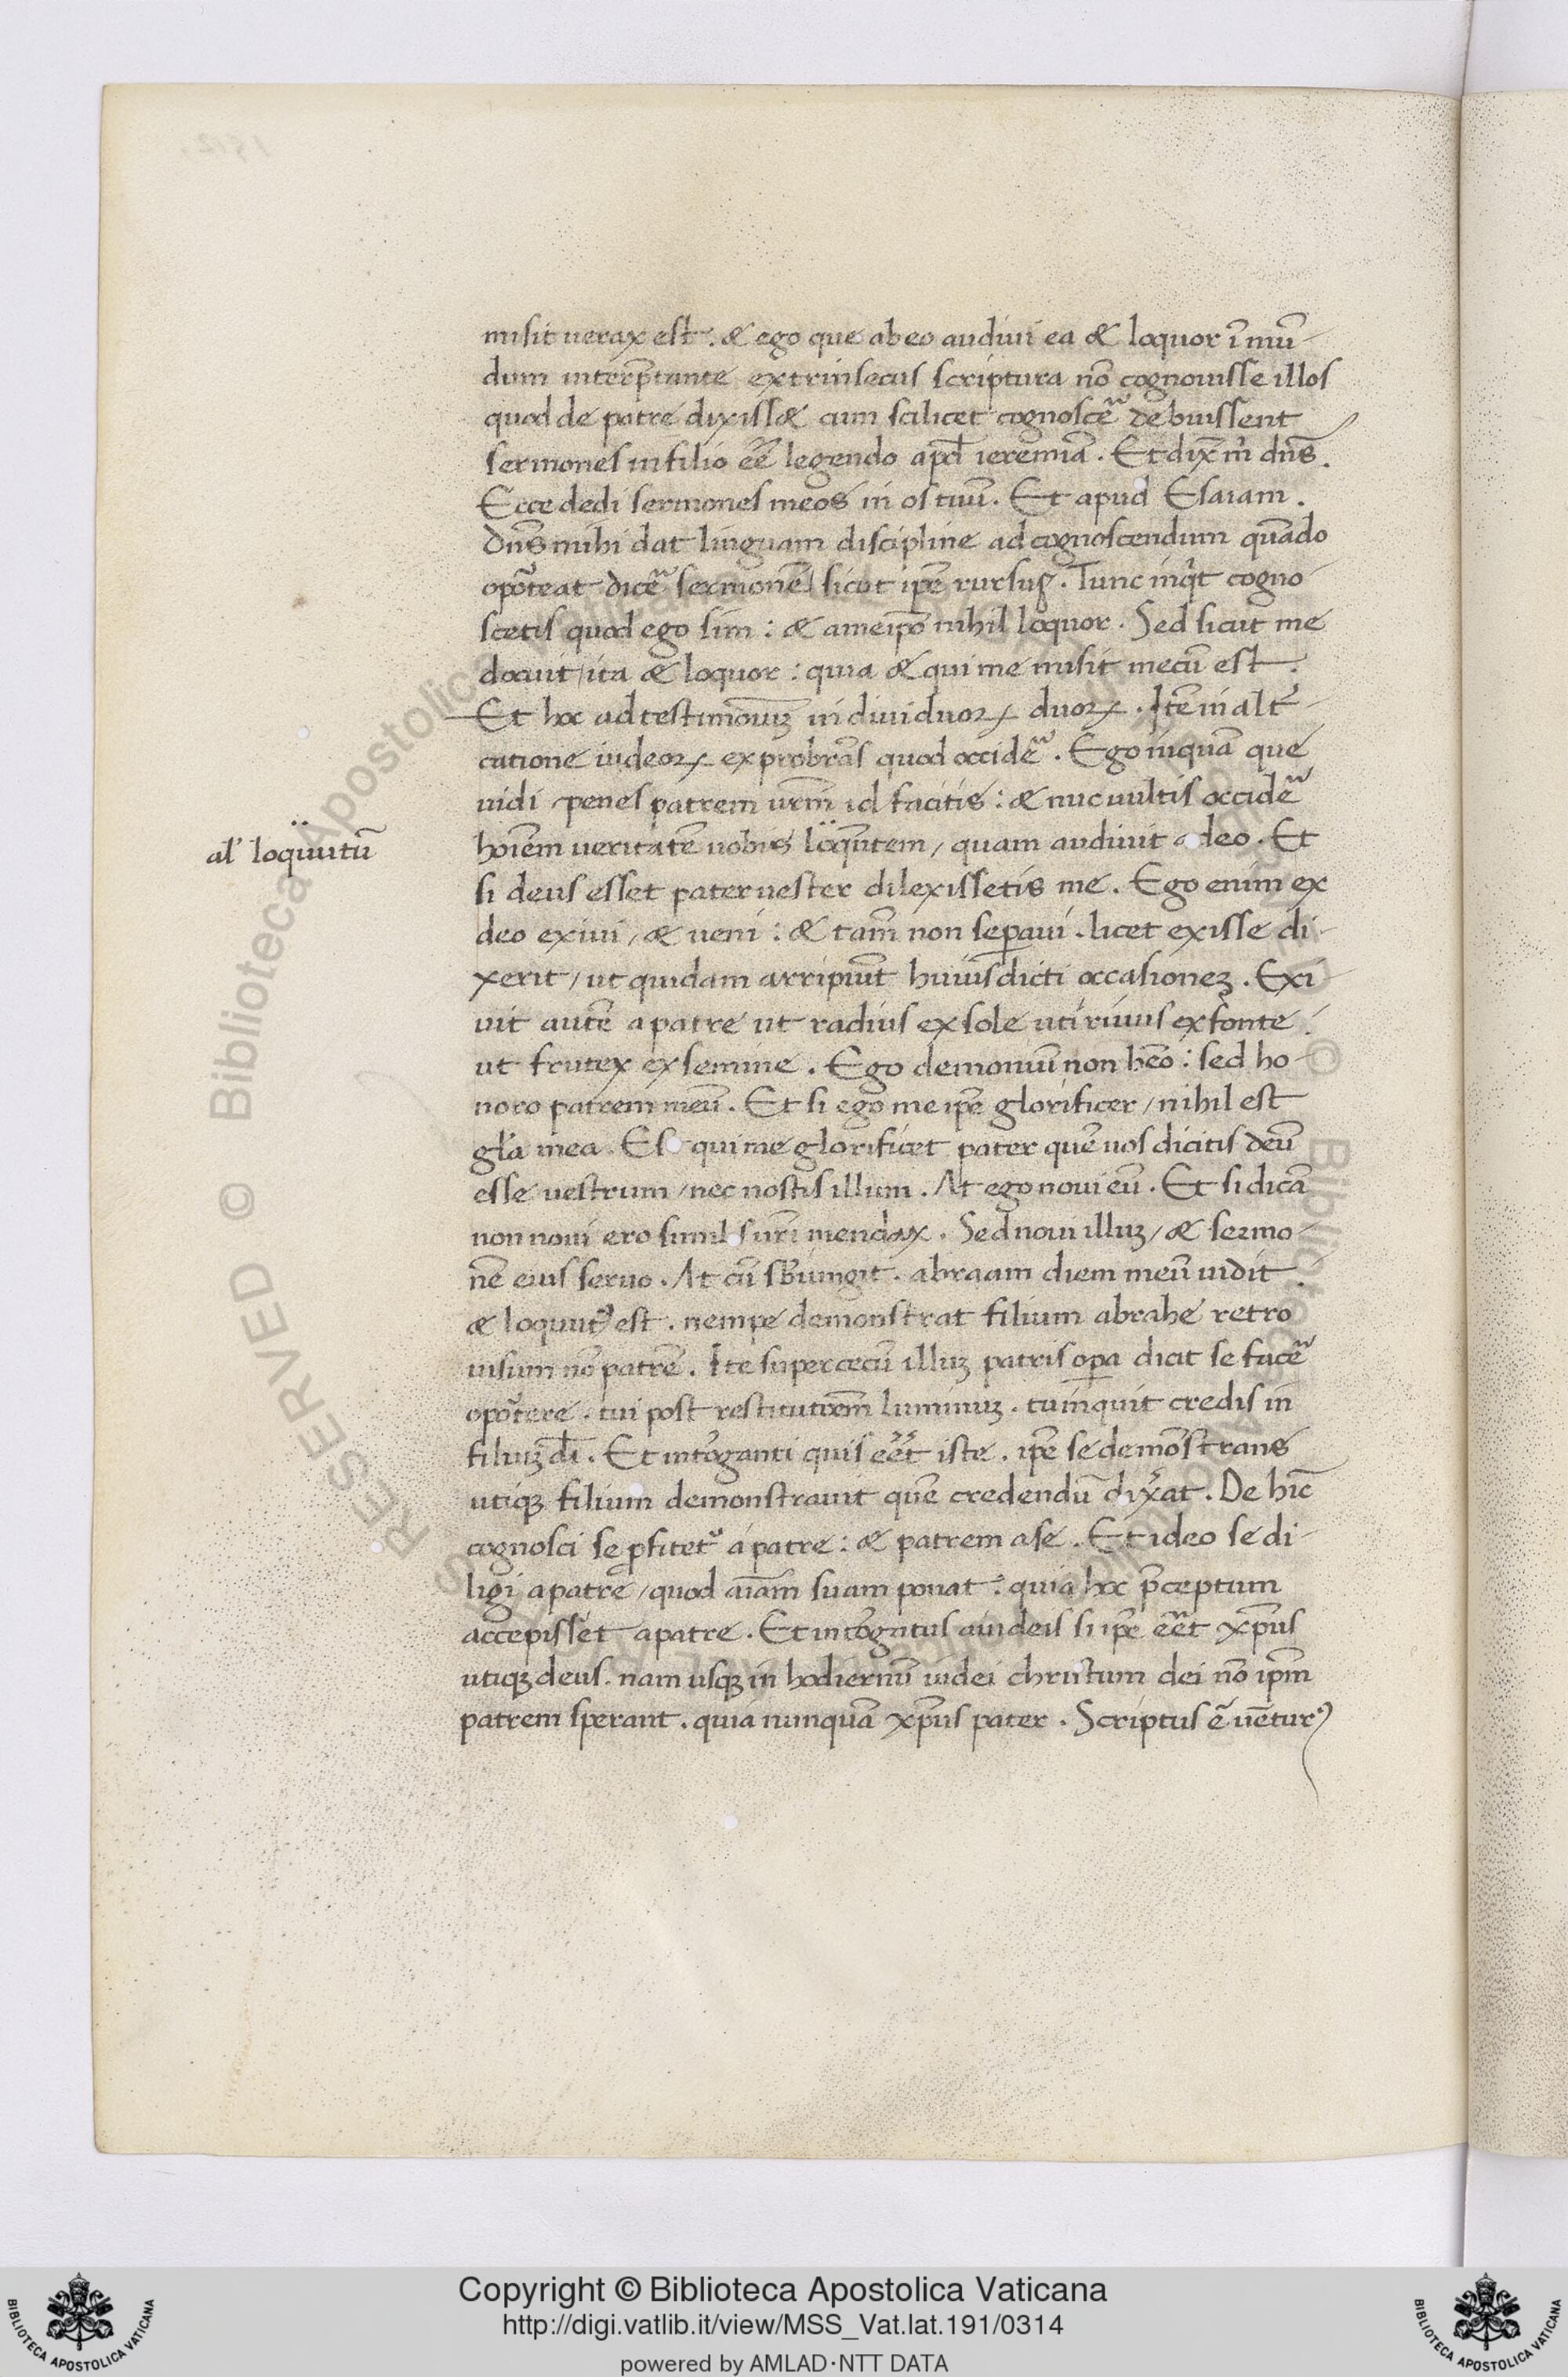 misit uerax est. & ego que ab eo audiui ea & loquor ī mū-
dum interp̄tante extrinsecus scriptura nō cognouisse illos
quod de patre dixiss& cum scilicet cognoscẽ debuissent
sermones in filio eē̃ legendo apd̄ ieremiā. Et dix̄ m̄ dn̄s.
Ecce dedi sermones meos in os tuū. Et apud Esaiam.
Dn̄s mihi dat linguam discipline ad cognoscendum quādo
opōteat dicẽ sermonē/ sicut ip̄e rursus. Tunc inq̄t cogno-
scetis quod ego sim: & a meip̄o nihil loquor. Sed sicut me
docuit/ita & loquor: quia & qui me misit mecū est.
Et hoc ad testimōniuꝫ indiuiduoꝝ duoꝝ. Itē in alt̃-
catione iudeoꝝ exprobrās quod occidẽ. Ego inquā que
uidi penes patrem ur̄m id facitis: & nūc uultis occidẽ
al' loquutū
hoiēm ueritatē uobis loq̄ntem, quam audiuit a deo. Et
si deus esset pater uester dilexissetis me. Ego enim ex
deo exiui, & ueni: & tam̄ non sep̄aui. licet exisse di-
xerit/ ut quidam arripiūt huius dicti occasioneꝫ. Exi-
uit autē a patre ut radius ex sole uti riuus ex fonte
ut frutex ex semine. Ego demoniū non hēo: sed ho-
noro patrem meū. Et si ego me ip̄e glorificer/ nihil est
gl'a mea. Est qui me glorificet pater quē uos dicitis deū
esse uestrum/ nec nostis illum. At ego noui eū. Et si dicā
non noui ero simil' ur̄i mendax. Sed noui illuꝫ/ & sermo-
nē eius seruo. At cū sb̄iungit. abraam diem meū uidit
& loquutꝰ est. nempe demonstrat filium abrahe retro
uisum nō patrē. Ite super cecū illuꝫ patris opa dicit se facẽ
opōtere. cui post restitutōem luminuꝫ. tu inquit credis in
filiuꝫ dī. Et int̄oganti quis eē̃t iste. ip̄e se demōstrans
utiqꝫ filium demonstrauit quē credendū dix̃at. De hīc
cognosci se ꝓfitetᷣ a patre: & patrem a se. Et ideo se di-
ligi a patre/ quod aīam suam ponat: quia hoc p̄ceptum
accepisset a patre. Et int̄ogatus a iudeis si ip̄e eē̃t xp̄us
utiqꝫ deus. nam usqꝫ in hodiernū iudei christum dei nō ip̄m
patrem sperant. quia nunquā xp̄us pater. Scriptus ē uēturꝰ
Copyright © Biblioteca Apostolica Vaticana
http://digi.vatlib.it/view/MSS_Vat.lat.191/0314
powered by AMLAD·NTT DATA
BIBLIOTECA APOSTOLICA VATICANA
BIBLIOTECA APOSTOLICA VATICANA